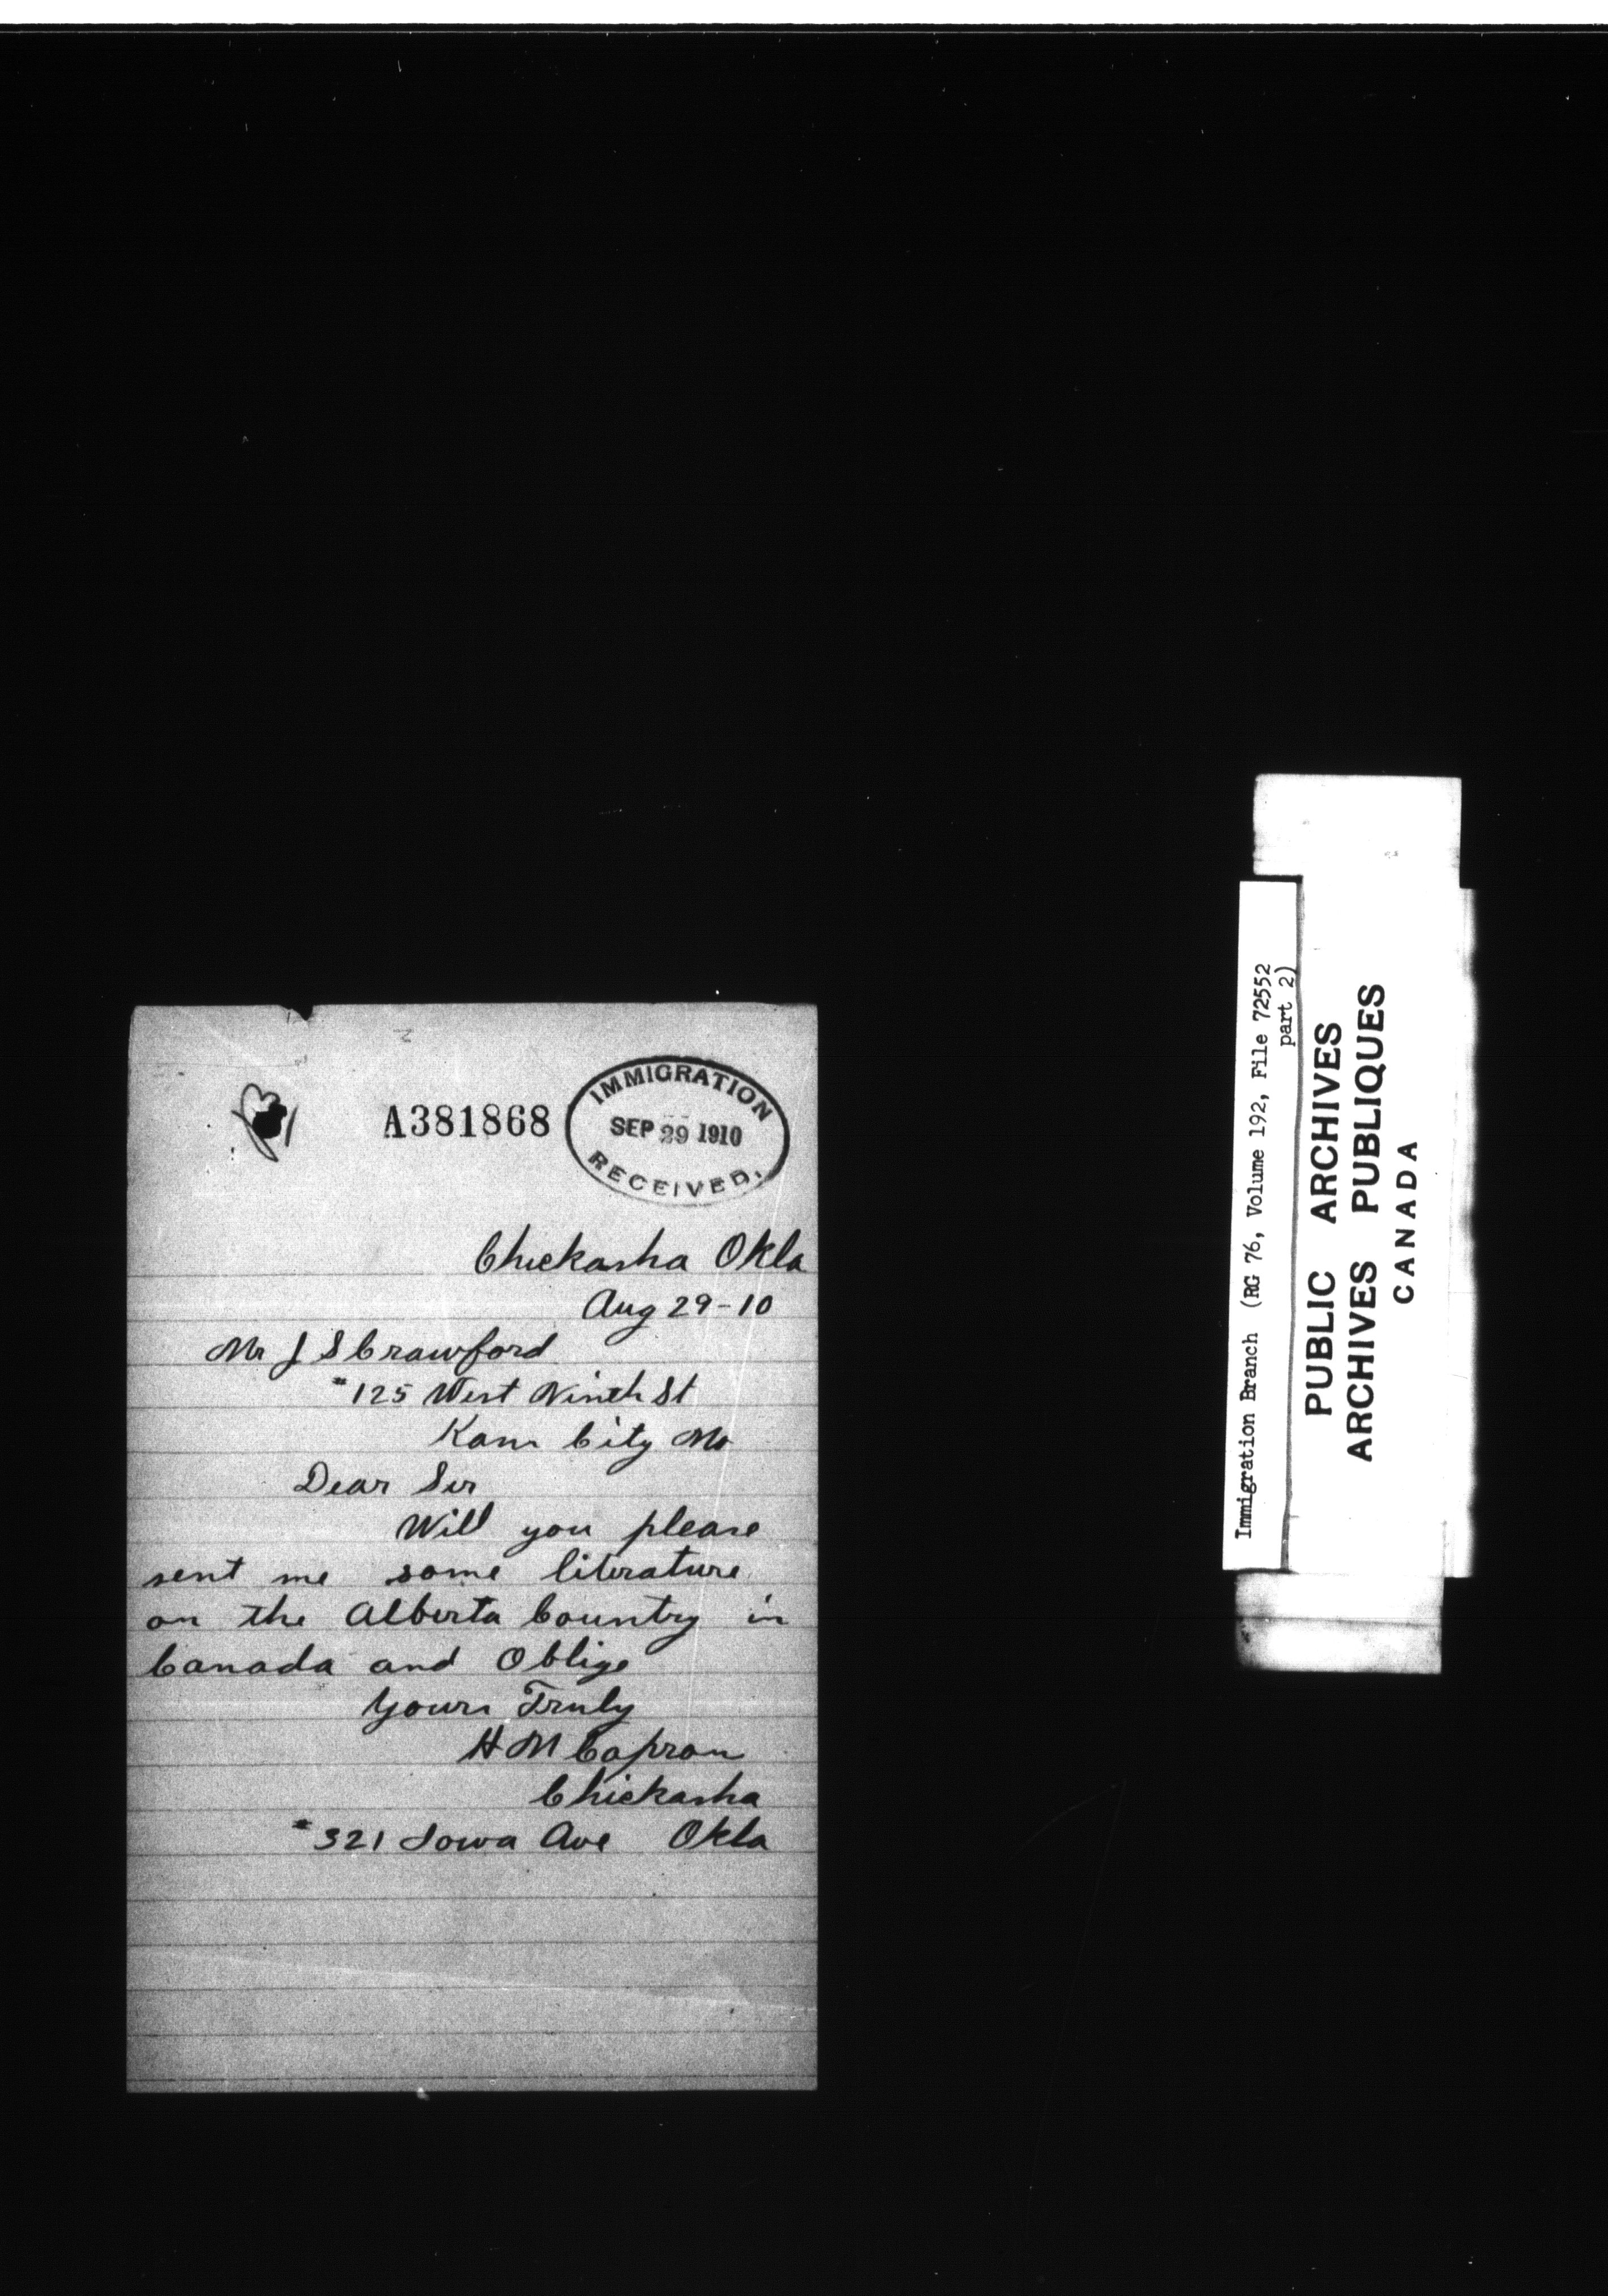 A381868
IMMIGRATION
SEP 29 1910
RECEIVED.
Chickasha Okla
Aug 29-10
Mr J S Crawford
#125 West Ninth St
Kans City Mo
Dear Sir
Will you please
sent me some literature
on the Alberta Country in
Canada and Oblige
Yours Truly
H M Capron
Chickasha
#321 Iowa Ave Okla
Immigration Branch (RG 76, Volume 192, File 72552
part 2)
PUBLIC ARCHIVES
ARCHIVES PUBLIQUES
CANADA